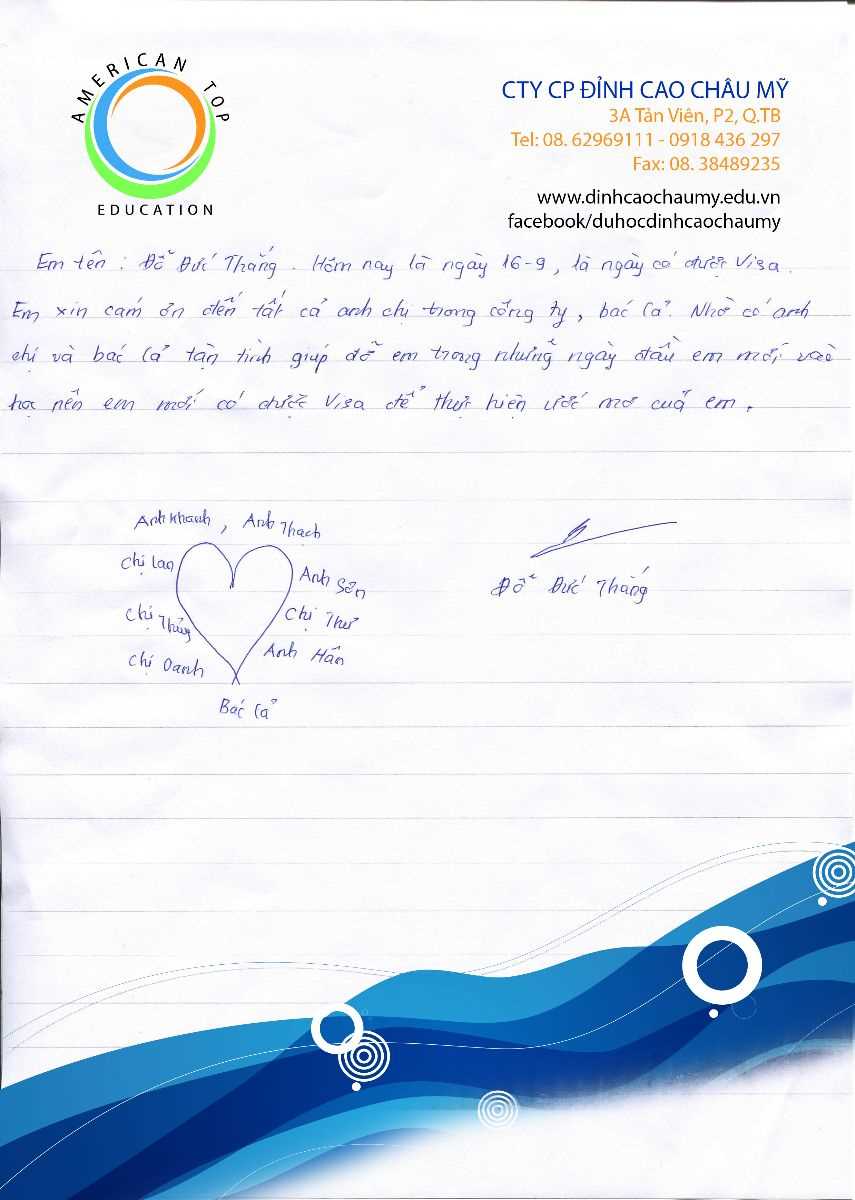 AMERICAN TOP
EDUCATION
CTY CP ĐỈNH CAO CHÂU MỸ
3A Tản Viên, P2, Q.TB
Tel: 08. 62969111 - 0918 436 297
Fax: 08. 38489235
www.dinhcaochaumy.edu.vn
facebook/duhocdinhcaochaumy
Em tên : Đỗ Đức Thắng. Hôm nay là ngày 16-9, là ngày có được Visa.
Em xin cám ơn đến tất cả anh chị trong công ty, bác Cả. Nhờ có anh
chị và bác Cả tận tình giúp đỡ em trong những ngày đầu em mới vào
học nên em mới có được Visa để thực hiện ước mơ của em.
Anh Khanh, Anh Thạch
Chị Lan
Anh Sơn
Chị Thủy
Chị Thư
Chị Oanh
Anh Hân
Bác Cả
Đỗ Đức Thắng